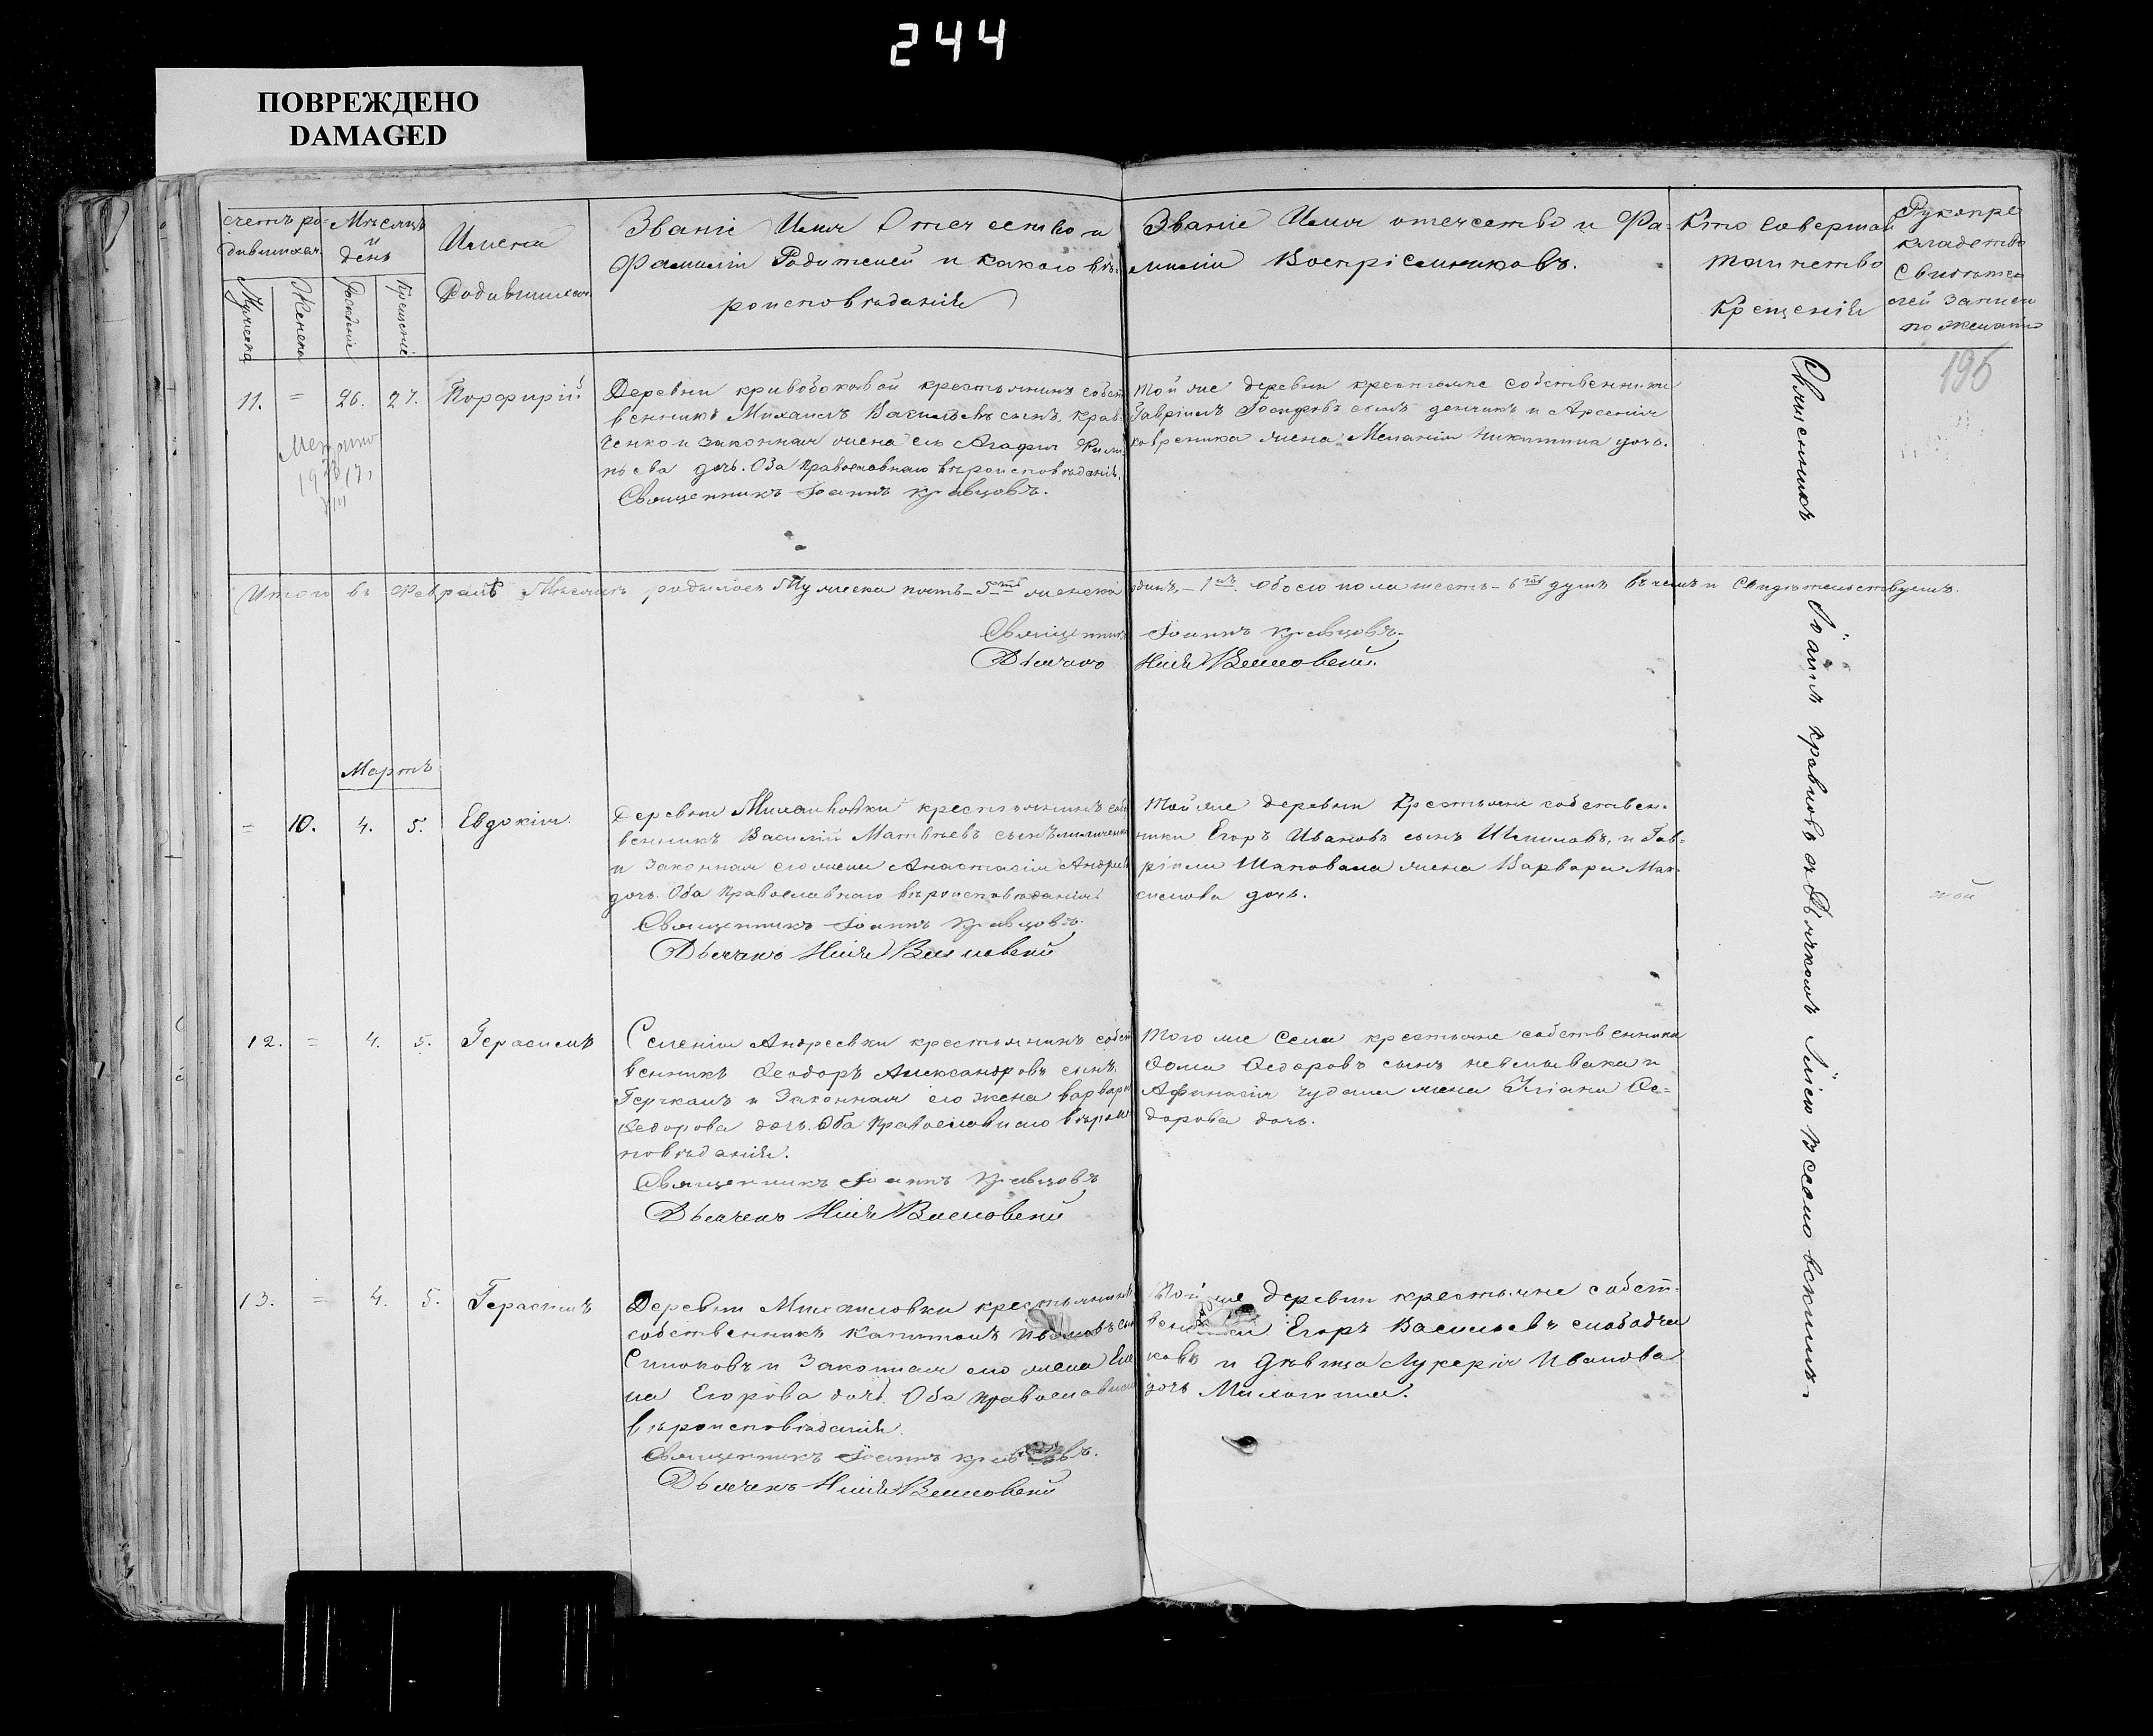 244
ПОВРЕЖДЕНО
DAMAGED
Счетъ ро-
дившихся.
Мѣсяцъ
и
день
Имена
Родившихся
Званіе Имя Отчество и
Фамилія Родителей и какого вѣ-
роисповѣданія
Званіе Имя отчество и Фа-
милія Воспріемниковъ.
Кто совершалъ
таинство
Крещенія
Рукопре
кладство
Свидѣте
лей записи
по желанію
Мужеска
Женска
Рожденія
Крещенія
195
11. = 26. 27. Порфирій
Деревни Кривобоковой крестьянинъ собст
венникъ Михаилъ Васильевъ сынъ Крав
ченко и законная жена его Агафія Фили
пьева дочь. Оба Православнаго вѣроисповѣданія.
Священникъ Іоаннъ Кравцовъ.
Той же деревни крестьяне собственники
Гавріилъ Іосифовъ сынъ и Арсенія
жена Меланія Никитина дочь.
Итого въ Февралѣ Мѣсяцѣ родилось Мужеска пять - 5ть женска одинъ - 1нъ. Обоего пола шесть - 6ть душъ въ чемъ и Свидѣтельствуемъ.
Священникъ Іоаннъ Кравцовъ.
Дьячокъ Илія
Мартъ
= 10. 4. 5. Евдокія.
Деревни крестьянинъ соб
венникъ Василій Матвѣевъ сынъ
и законная его жена Анастасія Андрее
дочь. Оба Православнаго вѣроисповѣданія
Священникъ Іоаннъ Кравцовъ.
Дьячокъ Илія
Той же деревни Крестьяне собствен-
ники Егоръ Ивановъ сынъ и Гав-
ріила Шаповала жена Варвара Мак-
симова дочь.
12. = 4. 5. Герасимъ
Селенія Андреевки крестьянинъ собст
венникъ Феодоръ Александровъ сынъ
и Законная его жена Варвара
Федорова дочь. Оба Православнаго вѣроис
повѣданія.
Священникъ Іоаннъ Кравцовъ
Дьячокъ Илія
Того же Села крестьяне собственники
Фома Федоровъ сынъ и
Афанасія жена Уліана Фе-
дорова дочь.
13. = 4. 5. Герасимъ
Деревни Михайловки крестьянинъ
собственникъ Капитонъ Ивановъ сын
и Законная его жена Еле
на Егорова дочь. Оба православнаго
вѣроисповѣданія.
Священникъ Іоаннъ Кравцовъ.
Дьячокъ Илія
Той же деревни крестьяне собст-
Егоръ Васильевъ слободчи
ковъ и Дѣвица Лукерія Иванова
дочь
Священникъ Іоаннъ Кравцовъ съ Дьячкомъ Иліею